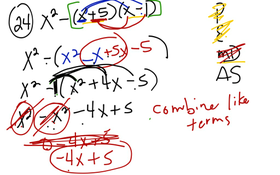 24) x² - (x+5)(x-1)
x² - (x² - x + 5x - 5)
x² - 1(x² + 4x - 5)
x² - x² - 4x + 5
0 - 4x + 5
-4x + 5
P
E
MD
AS
combine like
terms